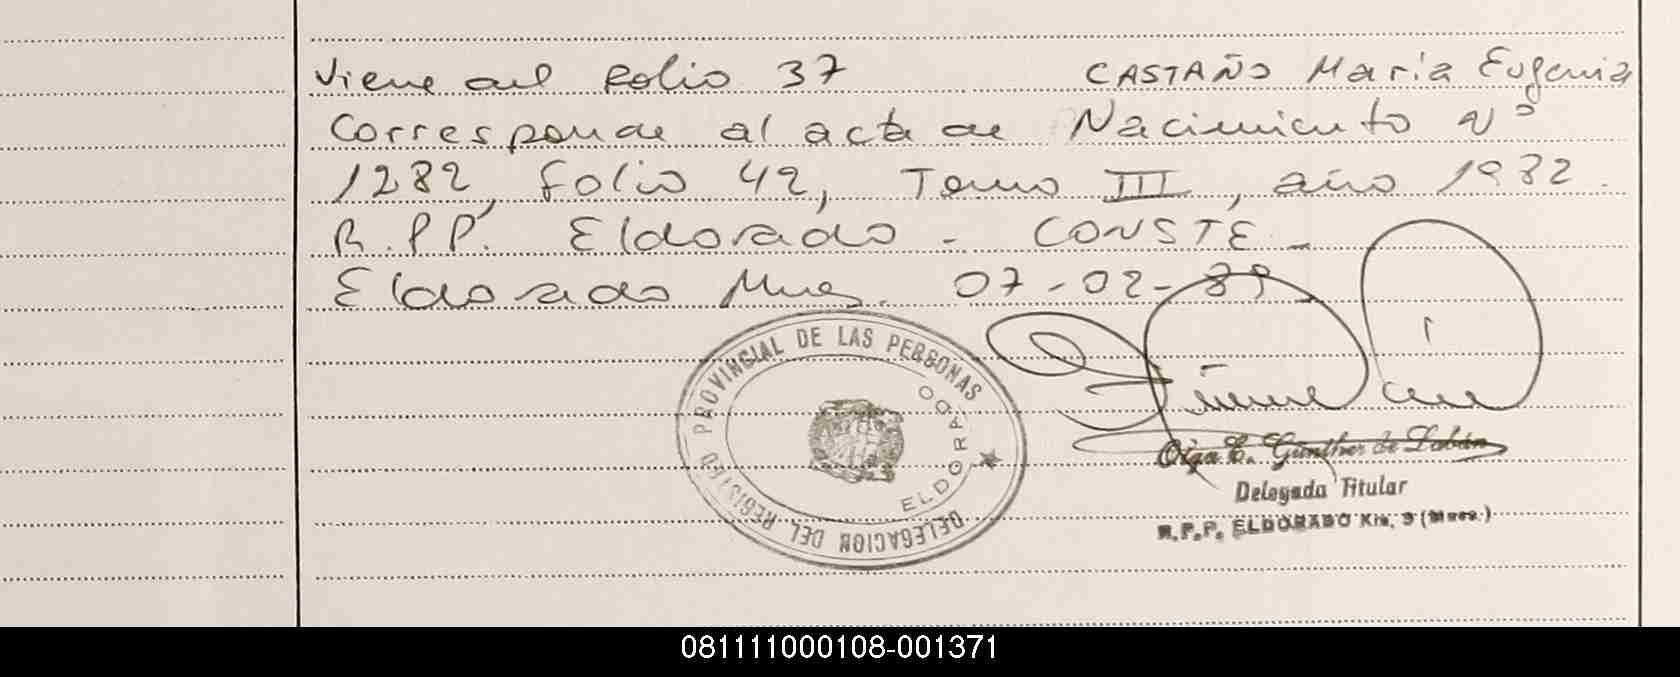 Viene del folio 37 CASTAÑO María Eugenia
Corresponde al acta de Nacimiento Nº
1282, folio 42, Tomo III, año 1982.
R.PP. Eldorado - CONSTE -
Eldorado Mnes. 07-02-89
DELEGACION DEL REGISTRO PROVINCIAL DE LAS PERSONAS
ELDORADO
Olga E. Günther de Labán
Delegada Titular
R.P.P. ELDORADO Km. 9 (Mnes.)
081111000108-001371